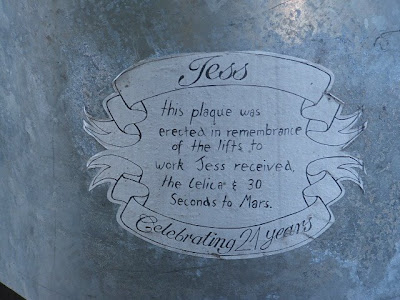 Jess
this plaque was
erected in remembrance
of the lifts to
work Jess received,
the Celica & 30
Seconds to Mars.
Celebrating 21 years